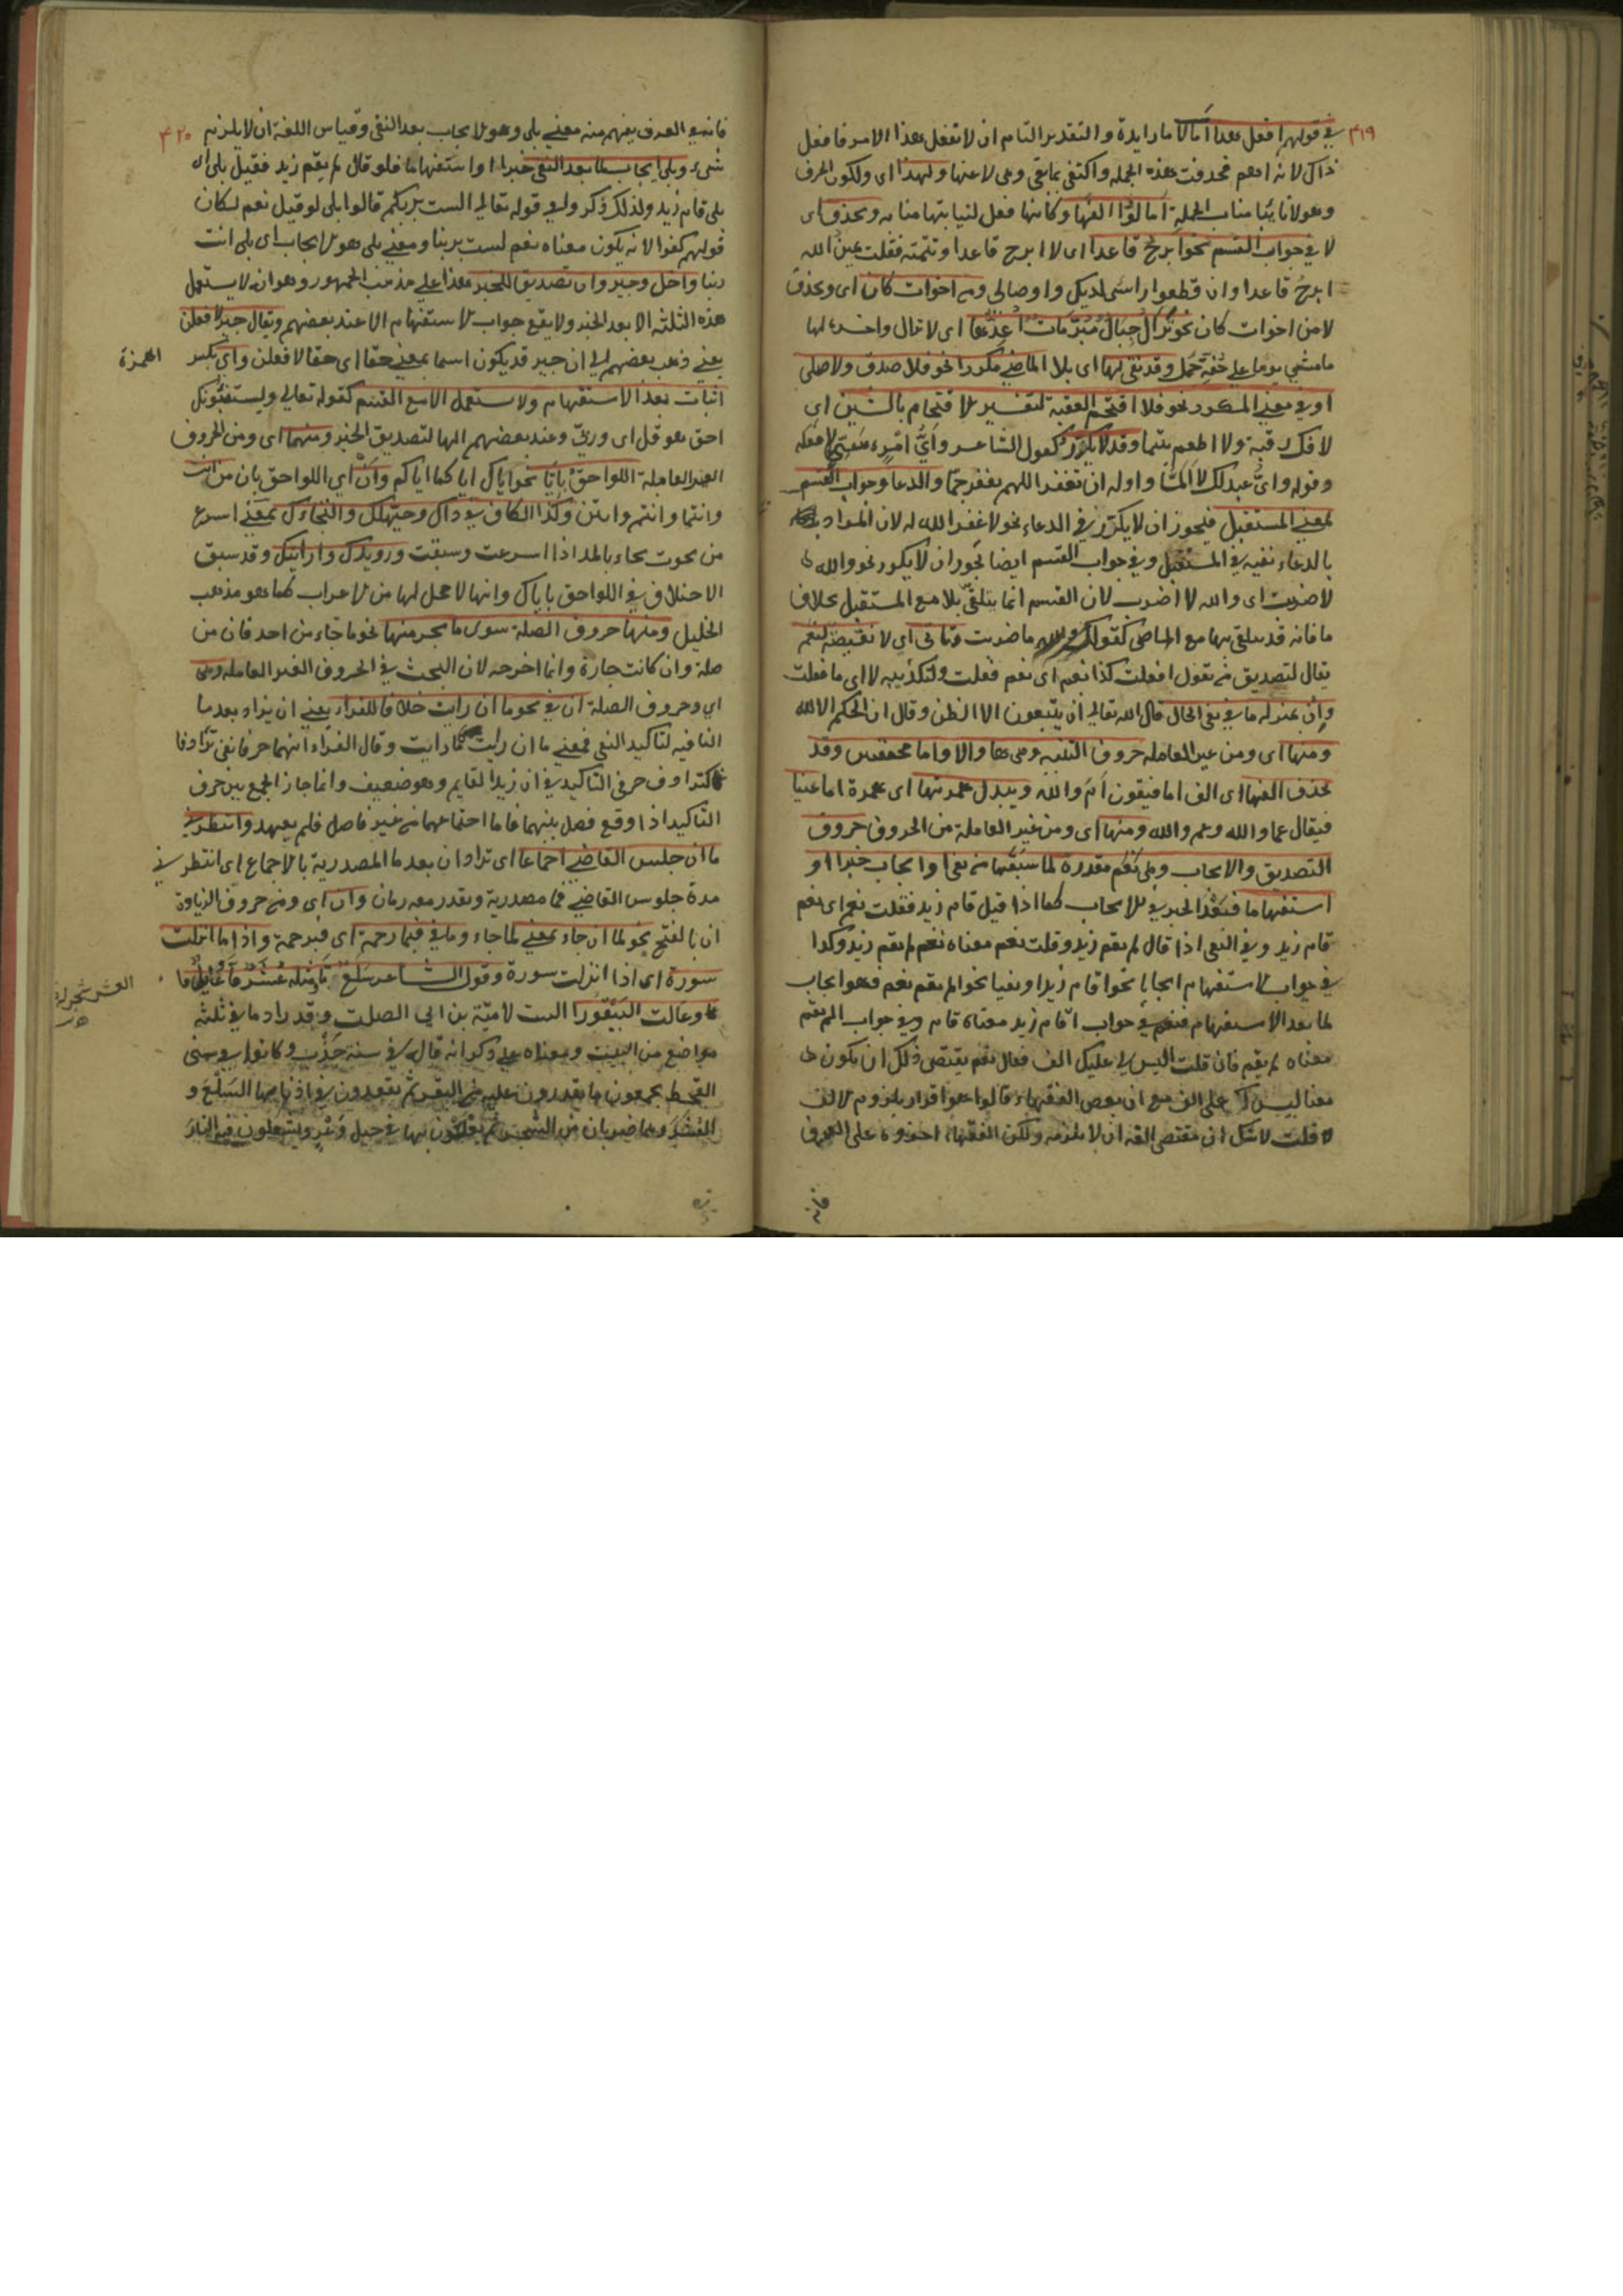 ٤١٩
في قولهم افعل هذا امالا ما زايدة والتقدير التام ان لا تفعل هذا الامر فافعل
ذاك لانه ادغم فحذفت هذه الجملة واكتفى بما بقي وهي لا عنها ولهذا اي ولكون الحرف
وهو لا نائبا مناب الجملة امالوا الفها وكانها فعل لنيابتها منابه ويحذف اي
لا في جواب القسم نحو ابرح قاعدا اي لا ابرح قاعدا وتتمته فقلت يمين الله
ابرح قاعدا وان قطعوا راسي لديك واوصالي ومن اخوات كان اي ويحذف
لا من اخوات كان نحو تزال حبال مبرمات اعدها اي لا تزال واخره لها
ما مشى يوما على خفه جمل وقد نفى لها اي بلا الماضي مكررا نحو فلا صدق ولا صلى
او في معنى المكرر نحو فلا اقتحم العقبة لتفسير الاقتحام بالشيئين اي
لا فك رقبة ولا اطعم يتيما وقد لا يكرر كقول الشاعر واي امر سيئ لا فعله
وقوله واي عبد لك لا المّا واوله ان تغفر اللهم تغفر جمّا والدعا وجواب القسم
لمعنى المستقبل فيجوز ان لا يكرر في الدعاء نحو لا غفر الله له لان المراد
بالدعاء نفيه في المستقبل وفي جواب القسم ايضا يجوز ان لا يكرر نحو والله
لا ضربت اي والله لا اضرب لان القسم انما يتلقى بلا مع المستقبل بخلاف
ما فانه قد يتلقى بها مع الماضي كقولك والله ما ضربت وتاتي اي لا نقيضة لنعم
يقال لتصديق من تقول افعلت كذا نعم اي نعم فعلت ولتكذيبه لا اي ما فعلت
وإن بمنزلة ما في نفي الحال قال الله تعالى ان يتبعون الا الظن وقال ان الحكم الا لله
ومنها اي ومن غير العاملة حروف التنبيه وهي ها والا واما مخففتين وقد
تحذف الفها اي الف اما فيقون اَمَ والله ويبدل همزتها اي همزة اما عينا
فيقال عما والله وعم والله ومنها اي ومن غير العاملة من الحروف حروف
التصديق والايجاب وهي نعم مقدرة لما سبقها من نفي او ايجاب خبرا او
استفهاما فنعم في الخبر للايجاب كما اذا قيل قام زيد فقلت نعم اي نعم
قام زيد وفي النفي اذا قال لم يقم زيد وقلت نعم معناه نعم لم يقم زيد وكذا
في جواب الاستفهام ايجابا نحو اقام زيد او نفيا نحو الم يقم نعم فهو ايجاب
لما بعد الاستفهام فنعم في جواب اقام زيد معناه قام وفي جواب الم يقم
معناه لم يقم فان قلت اليس لي عليك الف فقال نعم يقتضى ذلك ان يكون
معنا ليس لك على الف مع ان بعض الفقهاء قالوا هو اقرار يلزوم الالف
قلت لا شك ان مقتضى اللغة ان لا يلزمه ولكن الفقهاء اجروه على العرف
فانه
٤٢٠
فانه في العرف يفهم منه معنى بلى وهو الايجاب بعد النفي وقياس اللغة ان لا يلزم
شيء وبلى ايجاب لما بعد النفي خبرا او استفهاما فلو قال لم يقم زيد فقيل بلى اي
بلى قام زيد ولذلك ذكر وفي قوله تعالى الست بربكم قالوا بلى لو قيل نعم لكان
قولهم كفرا لانه يكون معناه نعم لست بربنا ومعنى بلى هو الايجاب اي بلى انت
ربنا واجل وجير وان تصديق للمخبر هذا على مذهب الجمهور وهو انه لا يستعمل
هذه الثلثة الا بعد الخبر ولا يقع جواب الاستفهام الا عند بعضهم وتقال جير لافعلن
يعني ذهب بعضهم الى ان جير قد يكون اسما بمعنى حقا اي حقا لافعلن واي بكسر
الهمزة
اثبات بعد الاستفهام ولا يستعمل الا مع القسم كقوله تعالى ويستنبئونك
احق هو قل اي وربي وعند بعضهم انها لتصديق الخبر ومنها اي ومن الحروف
الغير العاملة اللواحق بايّا نحو اياك اياكما اياكم وان اي اللواحق بان من انت
وانتما وانتم وانتن وكذا الكاف في ذاك وحيهلك والنجاءك بمعنى اسرع
من نجوت نجاء بالمد اذا اسرعت وسبقت ورويدك وارايتك وقد سبق
الاختلاف في اللواحق باياك وانها لا محل لها من الاعراب كما هو مذهب
الخليل ومنها حروف الصلة سوى ما يجر منها نحو ما جاء من احد فان من
صلة وان كانت جارة وانما اخرجه لان البحث في الحروف الغير العاملة وهي
اي وحروف الصلة ان في نحو ما ان رايت خلافا للفراء يعني ان يزاد بعد ما
النافية لتاكيد النفي فمعنى ما ان رايت ما رايت وقال الفراء انهما حرفا نفي ترادفا
كترادف حرفي التاكيد في ان زيدا لقايم وهو ضعيف وانما جاز الجمع بين حرف
التاكيد اذا وقع فصل بينهما فاما اجتماعهما من غير فاصل فلم يعهد وانتظر
ما ان جلس القاضي اجماعا اي تزاد ان بعد ما المصدرية بالاجماع اي انتظر في
مدة جلوس القاضي فما مصدرية ويقدر معه زمان وان اي ومن حروف الزيادة
ان بالفتح نحو لما ان جاء بمعنى لما جاء وما في فبما رحمة اي فبرحمة واذا ما انزلت
سورة اي اذا انزلت سورة وقول الشاعر سلع ما ومثله عشر ما عايل ما
العشر شجر له
وعالت البيقورا البيت لامية بن ابي الصلت وقد زاد ما في ثلثة
مواضع من البيت ومعناه على ذكر انه قال في سنة جدب وكانوا في سنى
القحط يجمعون ما يقدرون عليه من البقر ثم يعقدون في اذنابها السلع و
العشر وهما ضربان من الشجر ثم يعلون بها في جبل وعر ويشعلون فيه النار